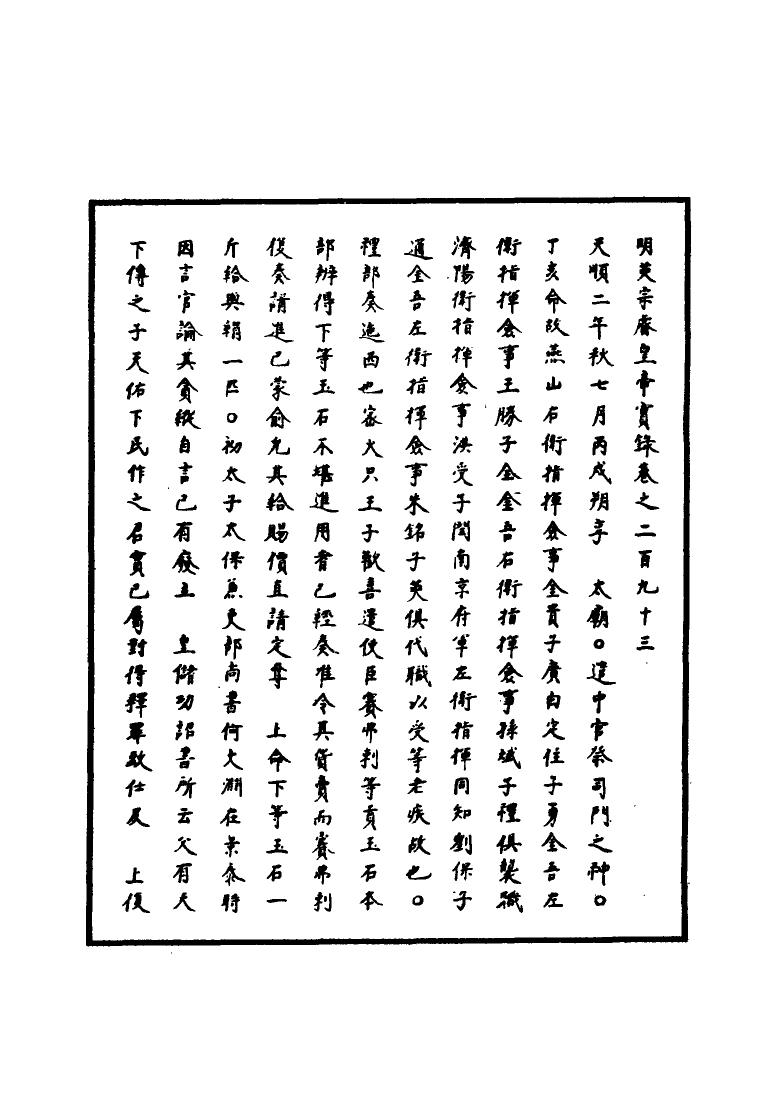 明英宗睿皇帝實錄卷之二百九十三
天順二年秋七月丙戌朔享　太廟○遣中官祭司門之神○
丁亥命故燕山右衛指揮僉事金貴子廣白定住子勇金吾左
衛指揮僉事王勝子全金吾右衛指揮僉事孫斌子禮俱襲職
濟陽衛指揮僉事洪受子閏南京府軍左衛指揮同知劉保子
通金吾左衛指揮僉事朱銘子英俱代職以受等老疾故也○
禮部奏迤西也密火只王子歡喜遣使臣賽弗剌等貢玉石本
部辨得下等玉石不堪進用者已經奏准令其貨賣而賽弗剌
復奏請進已蒙俞允其給賜價直請定奪　上命下等玉石一
斤給與絹一匹○初太子太保兼吏部尚書何文淵在景泰時
因言官論其貪縱自言已有廢立　皇儲功詔書所云父有天
下傳之子天佑下民作之君實已屬對得釋罪致仕及　上復